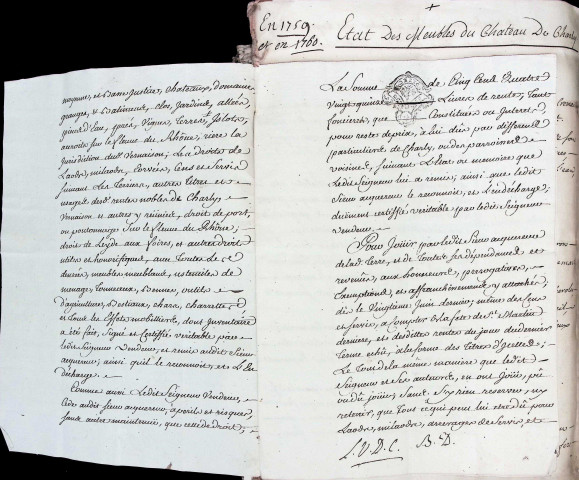 En 1759.
et en 1760.
Etat Des Meubles du Chateau De Charly
moyenne, et Basse Justice, Chateaux, Domaine,
granges, et Batiments, Clos, Jardins, allées,
pieces d'Eau, prés, Vignes, Terres et Islots,
sur le fleuve du Rhône, riere la
Jurisdiction de Vernaison; Les Droits de
Laods, milaods, Cervis, Cens et Servis
suivant Les Terriers, autres titres et
usages des dts rentes nobles de Charly,
Vernaison et autres y réunies, droit de port,
ou pontonnage Sur le fleuve du Rhône;
droit de Leyde aux foires, et autres droits
utiles et honorifiques, aux Toutes les
denrées, meubles meublants, ustencilles de
menage, Tonneaux, Bennes, outils
d'agriculture, Bestiaux, chars, charrettes
et tous les Effets mobiliers, dont Inventaire
a été fait, Signé et Certiffié veritable par
ledit Seigneur Vendeur, et remis audit Sieur
acquereur; ainsi qu'il le reconnoit, et L'en
décharge.
Comme aussi Ledit Seigneur Vendeur,
Cede audit Sieur acquereur, a perils et risques,
sans autre maintenue, que celle de Droit,
La Somme de Cinq Cent Quatre
vingt quinze Livres de rentes, tant
foncieres, que Constituées ou Interets
pour restes de prix, à lui dus par differents
particuliers de Charly, ou des paroisses
voisines, suivant L'Etat ou memoire que
Ledit Seigneur lui a remis; ainsi que ledit
Sieur acquereur le reconnoit, et L'en décharge;
duement certiffié veritable par ledit Seigneur
Vendeur.
Pour Jouir par ledit Sieur acquereur
de lad. Terre, et de Toutes ses dépendances et
revenus, aux honneurs, prerogatives,
Exemptions, et affranchissements y attachés,
dès le Vingtieme Juin dernier; même des Cens
et Servis, a compter de la fete de St. Martin
derniere, et desdittes rentes du jour du dernier
terme echu, a la forme des Titres d'Icelles;
Le Tout de la même maniere que ledit
Seigneur et Ses auteurs, en ont Joüi, pû
ou dû joüir; Sans S'y rien reserver, ny
retenir, que tout ce qui peut lui etre dû pour
Laods, milaods, arrerages de Servis, et
L. V. D. C. B. D.